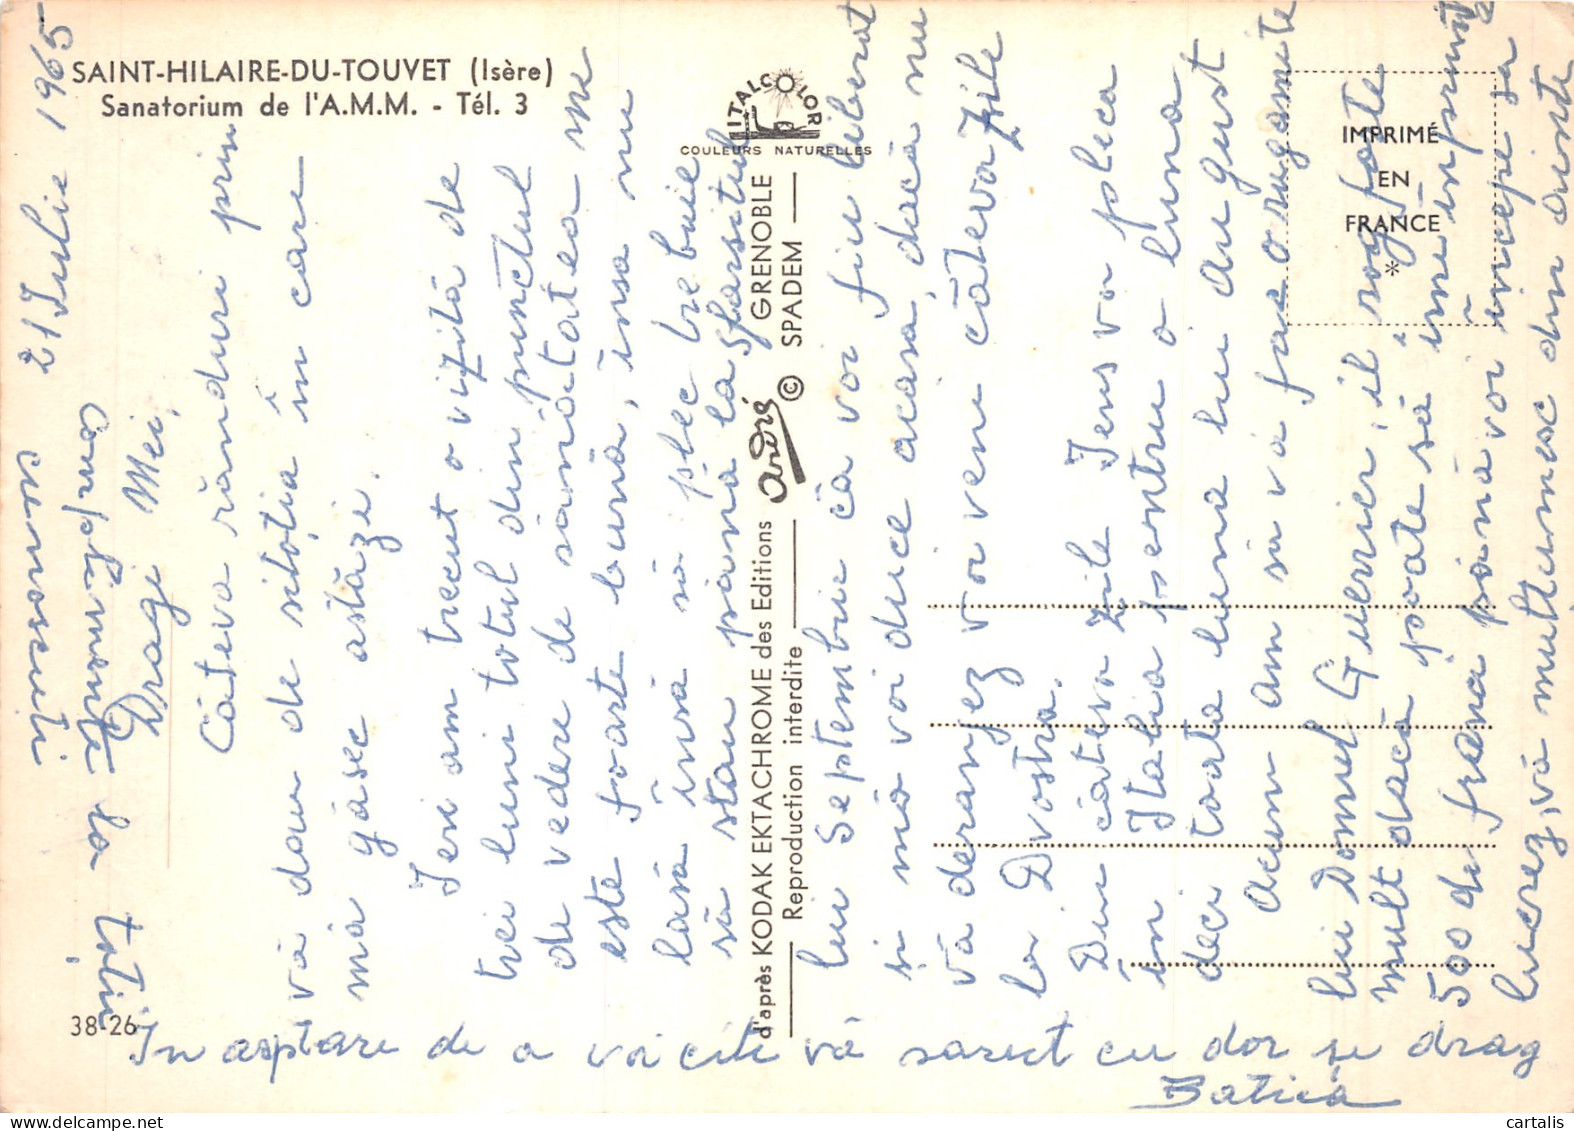 SAINT-HILAIRE-DU-TOUVET (Isère)
Sanatorium de l'A.M.M. - Tél. 3
ITALCOLOR
COULEURS NATURELLES
IMPRIMÉ
EN
FRANCE
*
d'après KODAK EKTACHROME des Editions André © GRENOBLE
Reproduction interdite SPADEM
38-26
21 Iulie 1965
Dragi Mei,
Câteva rânduri prin
vă dau de sitotia în care
mă găsesc astăzi.
Ieri am trecut o vizită de
trei luni totul din punctul
de vedere de sănătatea me
este foarte bună, însa nu
lasă însă să plec trebuie
să stau până la sfârsitul
lui Septembrie că voi fiu liberat
si mă voi duce acasa, dacă nu
vă deranjez voi veni câteva zile
la Dvostra.
Din câteva zile Iens va pleca
în Italia pentru o luna
deci toata luna lui August
Acum am să vă fac o rugaminte
lui Domnul Guerrier, îl rog foarte
mult dacă poate să îmi înprumite
500 de franci până voi începe sa
lucrez, vă multumesc din ainte
In asptare de a vă citi vă sarut cu dor si drag
Batica
complimente la toti
cunoscuti